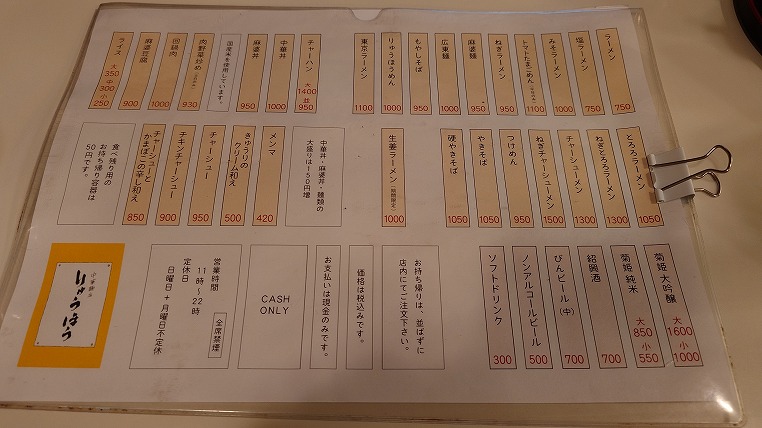 ラーメン
750
塩ラーメン
750
みそラーメン
1000
トマトたまごめん
1100
ねぎラーメン
950
麻婆麺
950
広東麺
1000
もやしそば
950
りゅうほうめん
1000
東京ラーメン
1100
チャーハン
大
1400
並
950
中華丼
1000
麻婆丼
950
国産米を使用しています。
肉野菜炒め
930
回鍋肉
1000
麻婆豆腐
900
ライス
大
350
中
300
小
250
とろろラーメン
1050
ねぎとろろラーメン
1300
チャーシューメン
1300
ねぎチャーシューメン
1500
つけめん
950
やきそば
1050
硬やきそば
1050
生姜ラーメン（期間限定）
1000
中華丼・麻婆丼・麺類の
大盛りは150円増
メンマ
420
きゅうりの
クリーム和え
500
チャーシュー
950
チキンチャーシュー
900
チャーシューと
かまぼこの辛し和え
850
食べ残り用の
お持ち帰り容器は
50円です。
菊姫 大吟醸
大
1600
小
1000
菊姫 純米
大
850
小
550
紹興酒
700
びんビール（中）
700
ノンアルコールビール
500
ソフトドリンク
300
お持ち帰りは、並ばずに
店内にてご注文下さい。
価格は税込みです。
お支払いは現金のみです。
CASH
ONLY
営業時間
11時〜22時
定休日
日曜日＋月曜日不定休
全席禁煙
りゅうほう